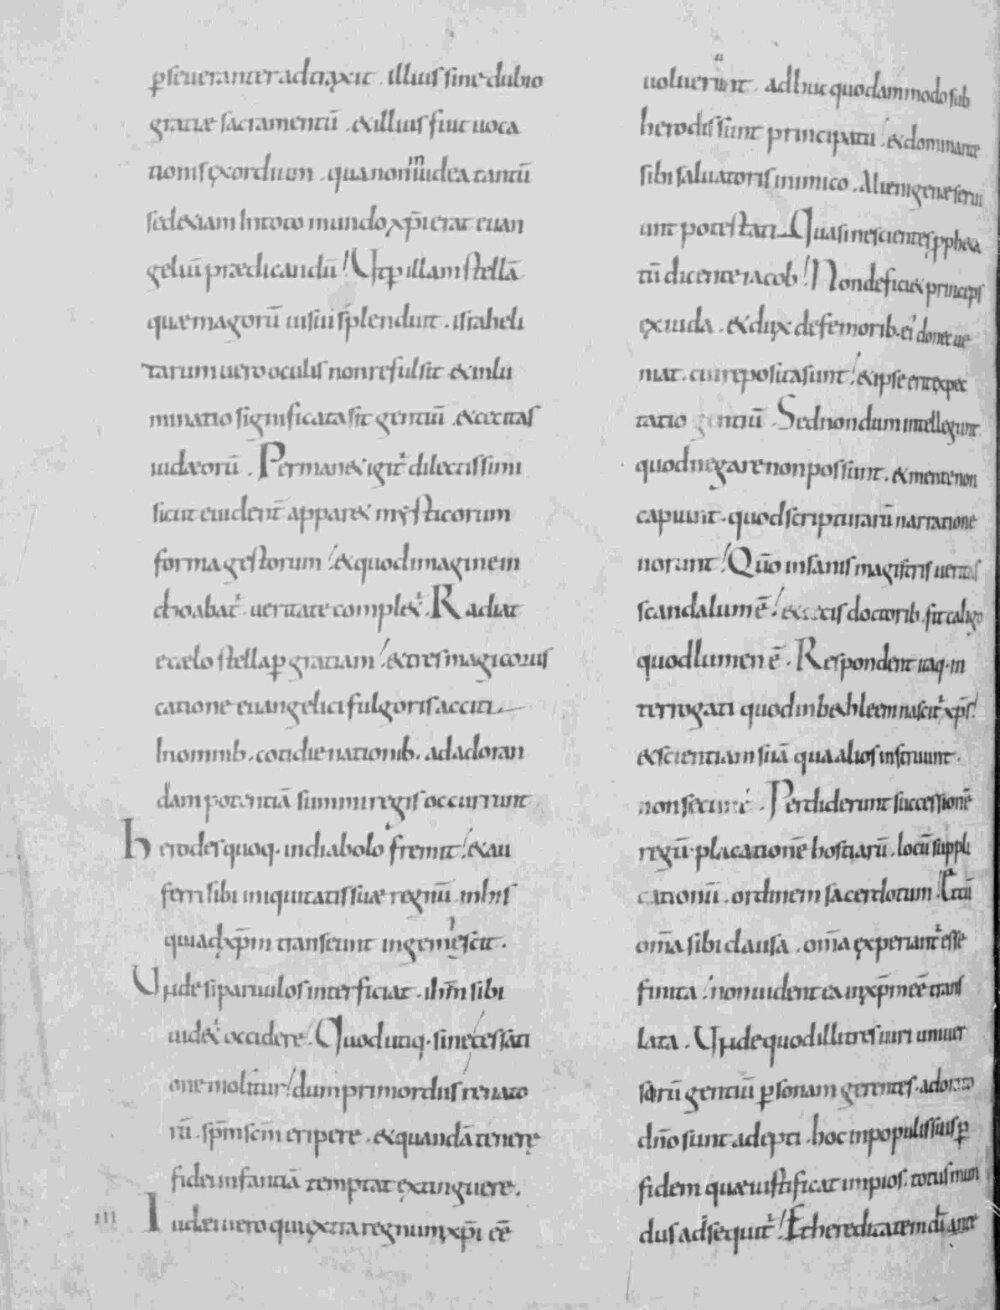 ꝑseueranter adtraxit . illiussine dubio
gratiæ sacramentū . & illius fuit uoca
tionis ęxordium . qua non in iudea tantū
sed &iam In toto mundo xp̄i erat euan
geliū prædicandū! Ut ꝑ illam stellā
quæ magorū uisui splenduit . israheli
tarum uero oculis non refulsit & inlu
minatio significata sit gentiū . & cecitas
iudæorū . Perman& igit̄ dilectissimi
sicut euident̄ appar& mysticorum
forma gestorum! & quod imagine in
choabat̄ . ueritate compl&̄ . Radiat
e cælo stella ꝑ gratiam! & tres magi corus
catione euangelici fulgoris acciti
In omnib . cotidie nationib . ad adoran
dam potentiā summi regis occurrunt
herodes quoq . in diabolo fremit! & au
ferri sibi iniquitatis suæ regnū . in his
qui ad xp̄m transeunt ingemescit .
Unde si paruulos interficiat . ihm̄ sibi
uid&̄ occidere! Quod utiq . sine cessati
one molitur! dum primordiis renato
rū . sp̄m sc̄m eripere . & quandā tenerę
fidei infantiā temptat extinguere .
III Iudæi uero qui ęxtra regnum xp̄i eē
uoluerunt . adhuc quodammodo sub
herodis sunt principatu! & dominante
sibi saluatoris inimico . Alienigenæ serui
unt potestati Quasi nescientes ꝓpheta
tū dicente iacob! Non deficiet princeps
ęx iuda . & dux de femorib . ei' donec ue
niat . cui reposita sunt! & ipse erit expec
tatio gentiū . Sed nondum intellegunt
quod negare non possunt . & mente non
capiunt . quod scripturarū narratione
norunt! Qūo insanis magistris ueritas
scandalum ē! & cecis doctorib . fit caligo
quod lumen ē . Respondent itaq . in
terrogati quod in b&hleem nascit̄ xp̄s!
& scientiam suā qua alios instruunt .
non secunt̄ . Perdiderunt successionē
regū . placationē hostiarū . locū suppli
cationū . ordinem sacerdotum! Et cū
om̄a sibi clausa . om̄a ęxperiant̄ esse
finita! non uident ea in xp̄m eē trans
lata . Unde quod illi tres uiri uniuer
sarū gentiū ꝑsonam gerentes . adorato
dn̄o sunt adepti . hoc in populis suis ꝑ
fidem quæ iustificat impios . totus mun
dus adsequit̄! Et hereditatem dn̄i ante